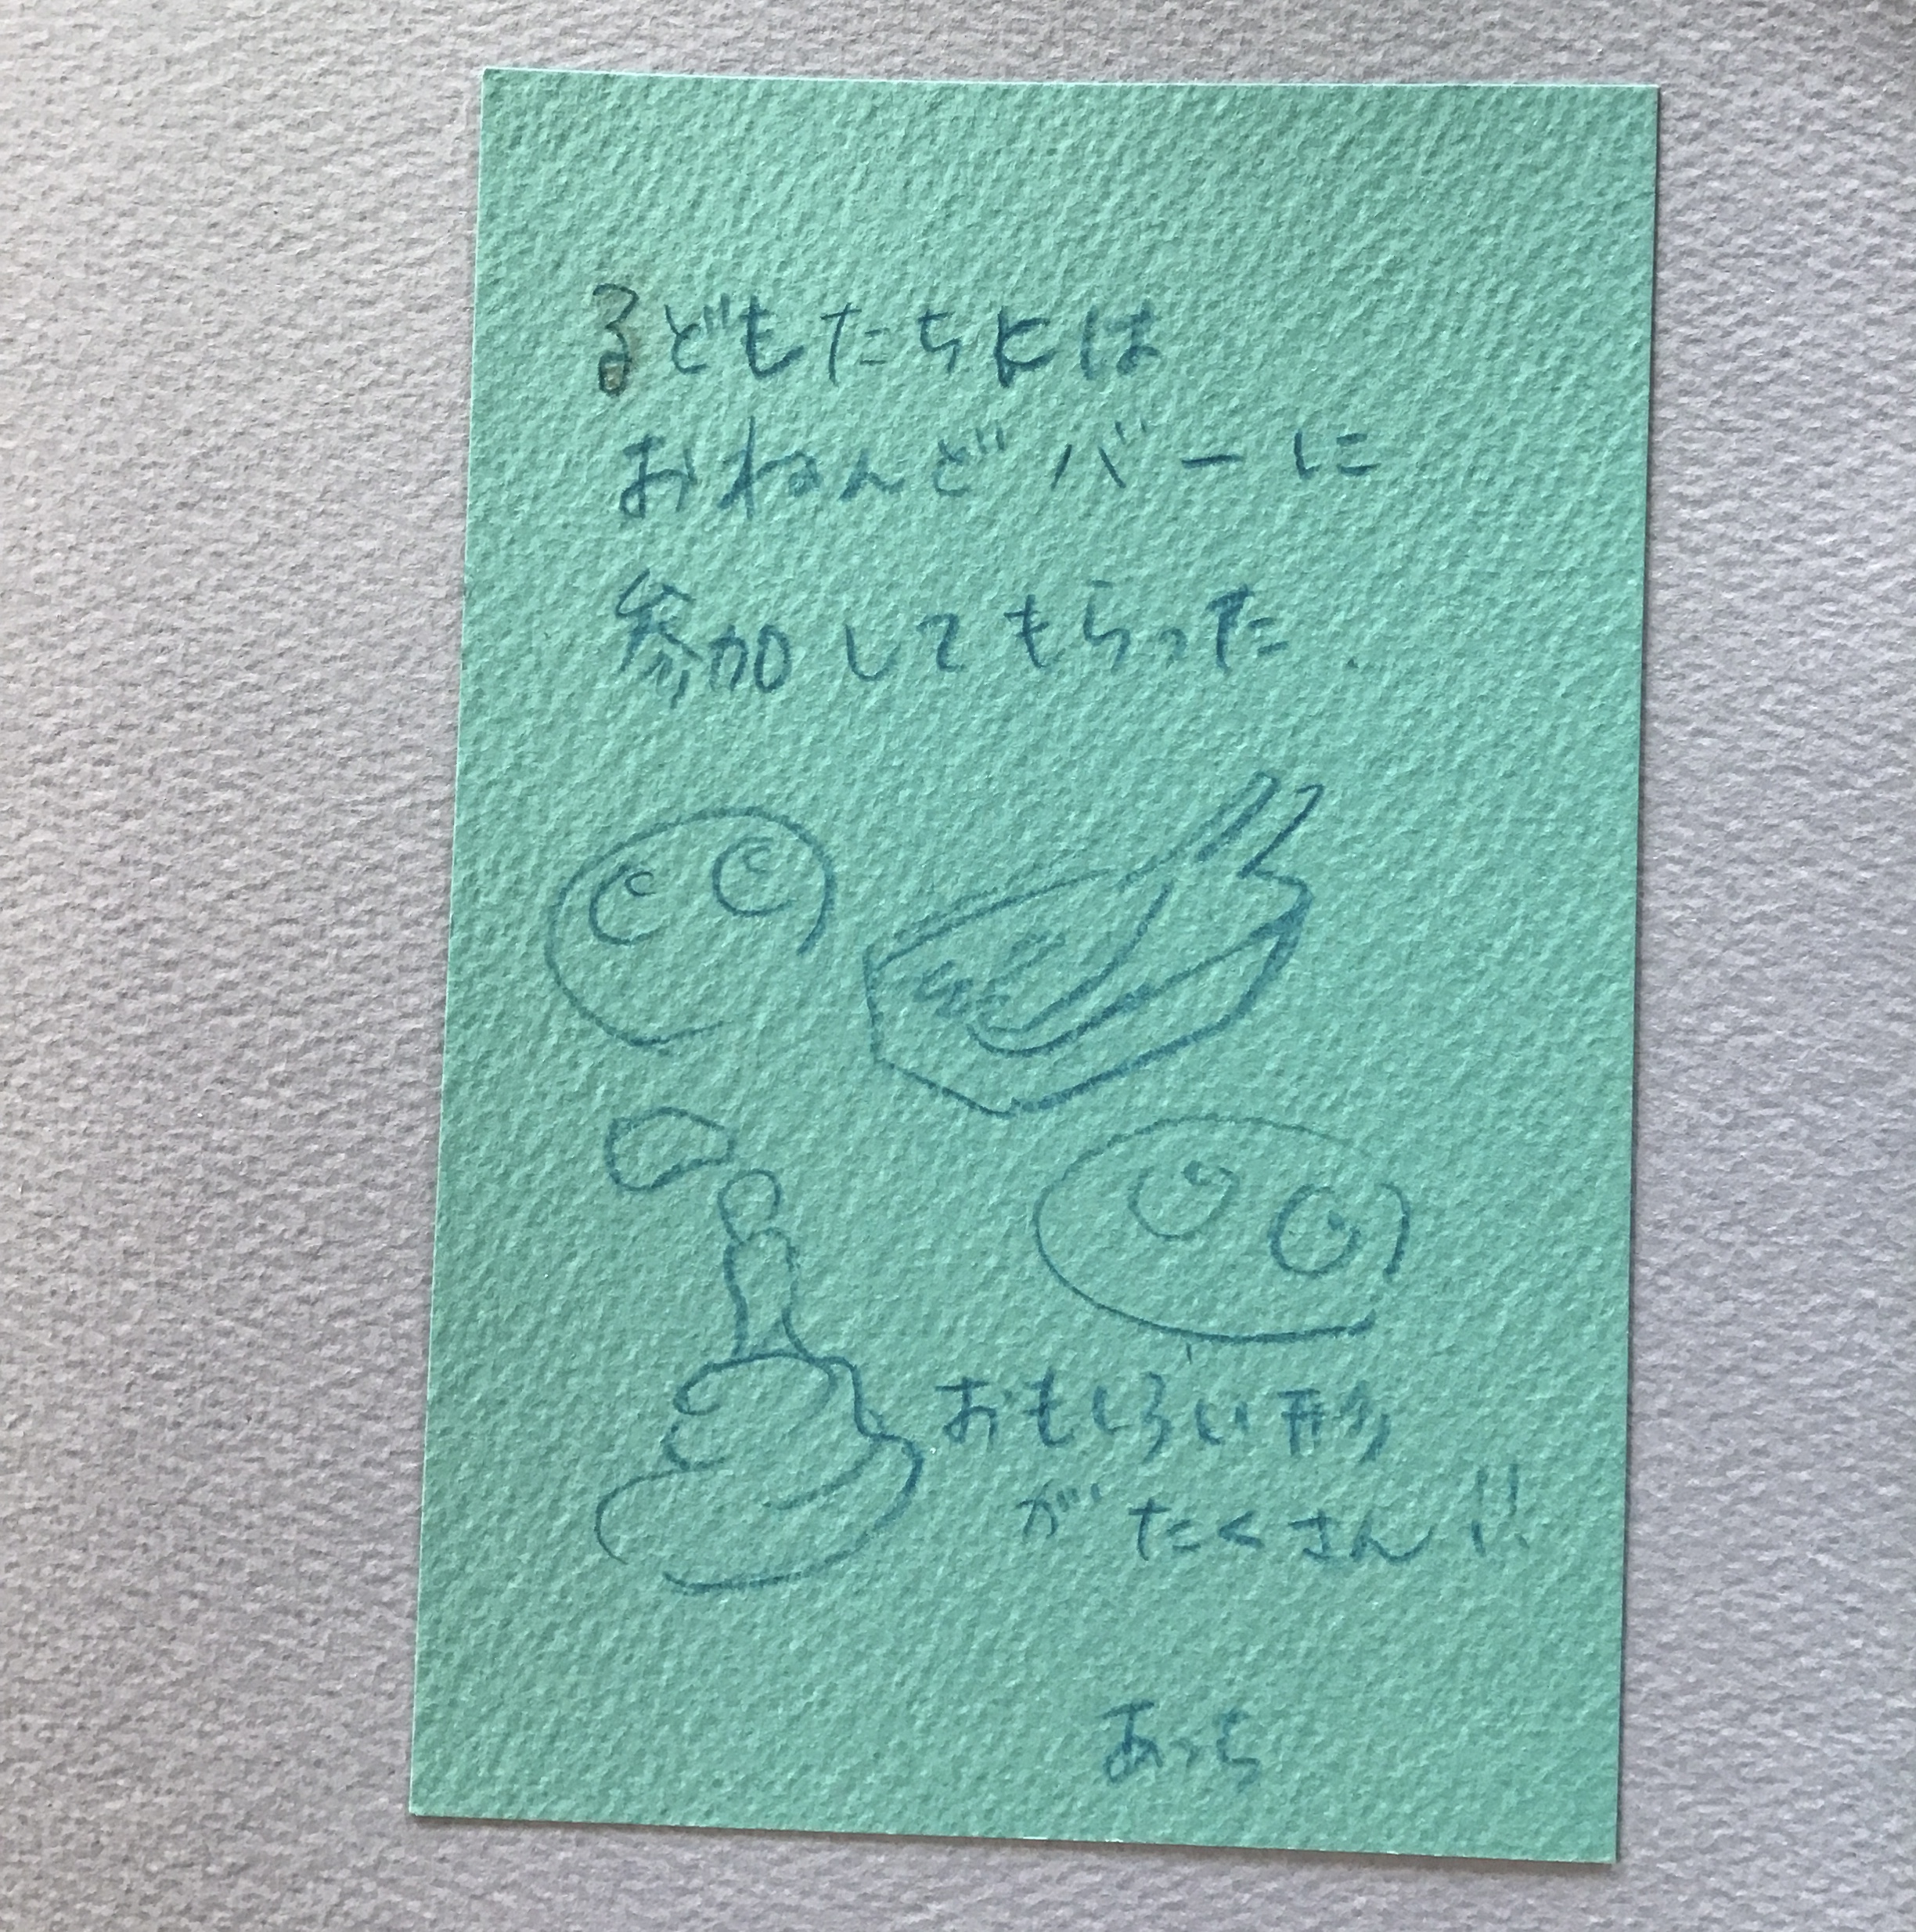 子どもたちには
おねんどバーに
参加してもらった.
おもしろい形
がたくさん!!
あっち